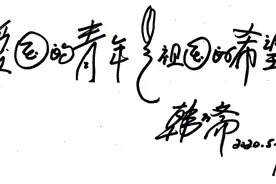 爱国的青年是祖国的希望
韩
2020.5.